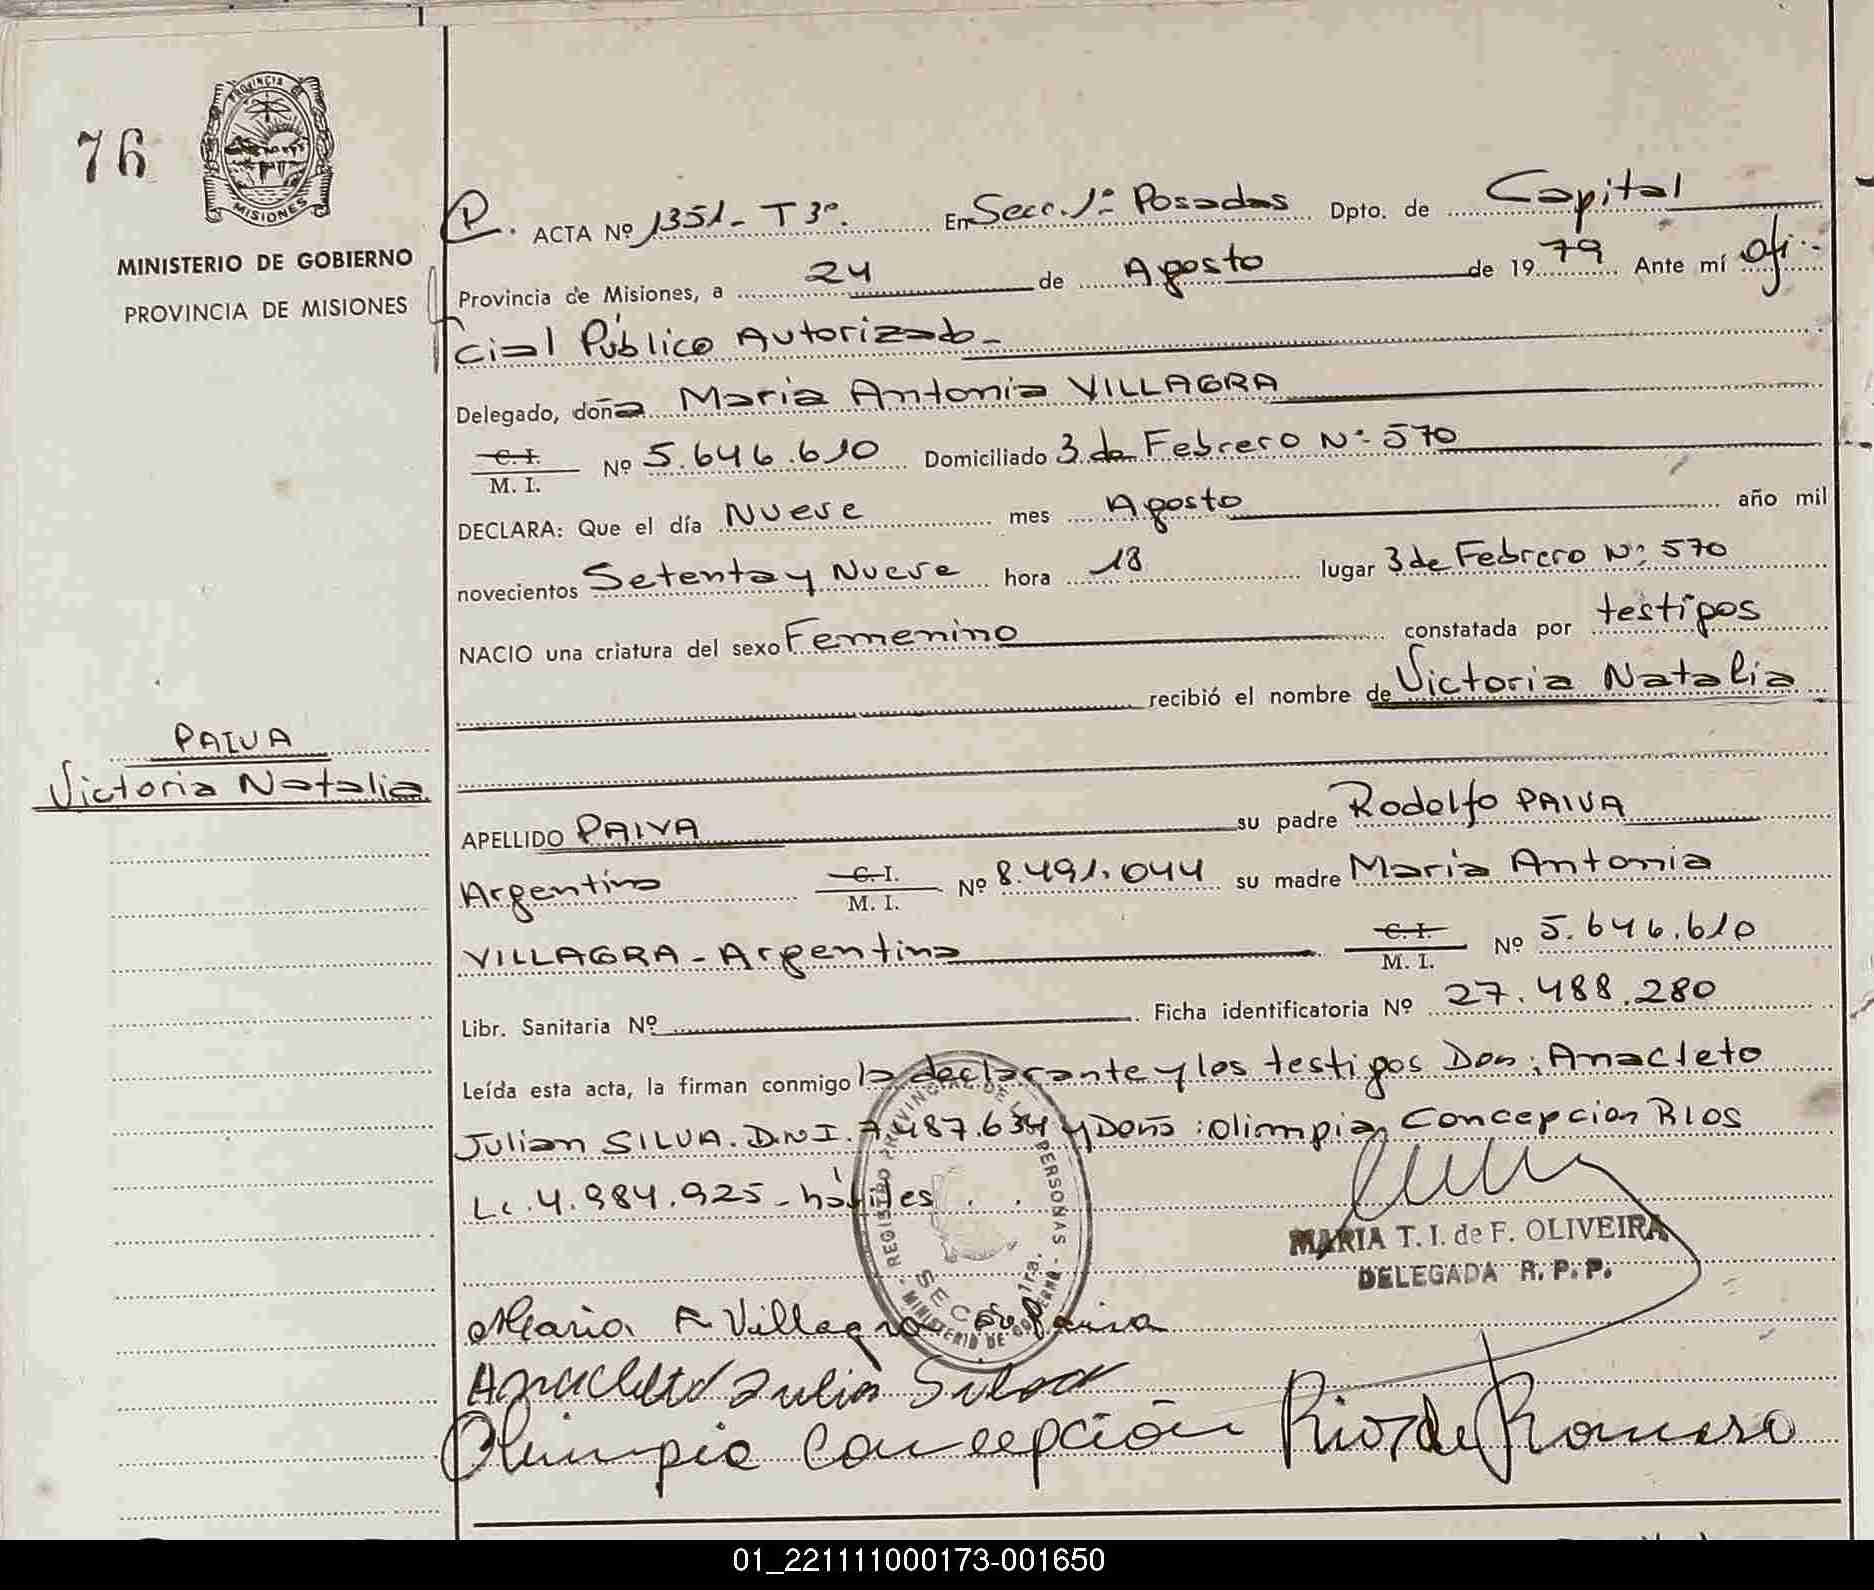 76
PROVINCIA DE
MISIONES
MINISTERIO DE GOBIERNO
PROVINCIA DE MISIONES
P. ACTA Nº 1351- T 3º. En Secc. 1ª Posadas Dpto. de Capital
Provincia de Misiones, a 24 de Agosto de 1979 Ante mí ofi-
cial Público Autorizado-
Delegado, doña Maria Antonia VILLAGRA
C. I.
M. I. Nº 5.646.610 Domiciliado 3 de Febrero Nº 570
DECLARA: Que el día Nueve mes Agosto año mil
novecientos Setenta y Nueve hora 18 lugar 3 de Febrero Nº 570
NACIO una criatura del sexo Femenino constatada por testigos
recibió el nombre de Victoria Natalia
PAIVA
Victoria Natalia
APELLIDO PAIVA su padre Rodolfo PAIVA
Argentino C. I.
M. I. Nº 8.491.044 su madre María Antonia
VILLAGRA - Argentina C. I.
M. I. Nº 5.646.610
Libr. Sanitaria Nº Ficha identificatoria Nº 27.488.280
Leída esta acta, la firman conmigo la declarante y los testigos Don: Anacleto
Julian SILVA. D.N.I. 7.487.634 y Doña: Olimpia Concepcion RIOS
L.c. 4.984.925- hábiles..
REGISTRO PROVINCIAL DE LAS PERSONAS - MINISTERIO DE GOBIERNO -
SECC. 1ra.
MARIA T. I. de F. OLIVEIRA
DELEGADA R. P. P.
Maria A Villagra de Paiva
Anacleto Julian Silva
Olimpia Concepción Rios de Romero
01_221111000173-001650